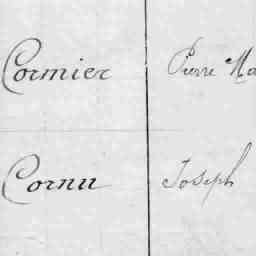 Cormier Pierre Ma
Cornu Joseph